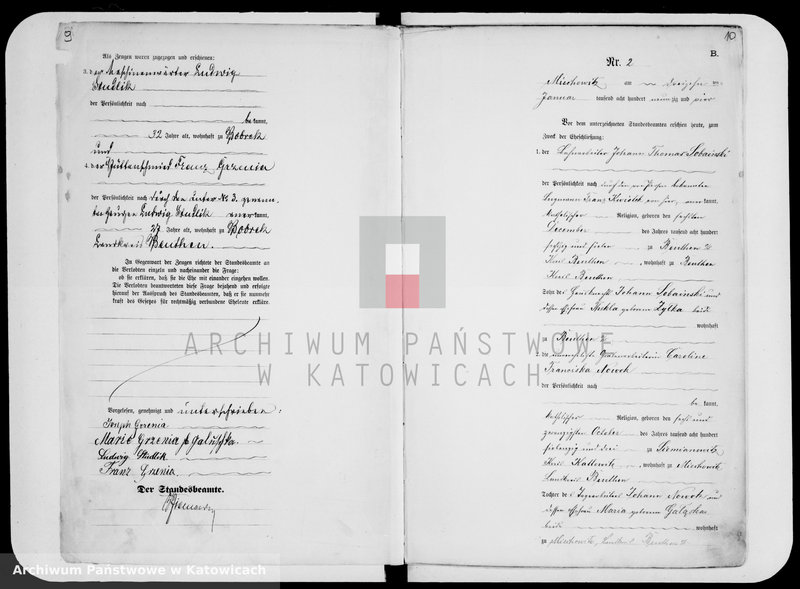 9
Als Zeugen waren zugezogen und erschienen:
3. der Maschinenwärter Ludwig
Studlik
der Persönlichkeit nach
be kannt,
32 Jahre alt, wohnhaft zu Bobrek
und
4. der Hüttenschmied Franz Grzenia
der Persönlichkeit nach durch den unter No 3. genann-
ten Zeugen Ludwig Studlik anerkannt,
27 Jahre alt, wohnhaft zu Bobrek
Landkreis Beuthen.
In Gegenwart der Zeugen richtete der Standesbeamte an
die Verlobten einzeln und nacheinander die Frage:
ob sie erklären, daß sie die Ehe mit einander eingehen wollen.
Die Verlobten beantworteten diese Frage bejahend und erfolgte
hierauf der Ausspruch des Standesbeamten, daß er sie nunmehr
kraft des Gesetzes für rechtmäßig verbundene Eheleute erkläre.
Vorgelesen, genehmigt und unterschrieben:
Joseph Grzenia
Marie Grzenia geb Galuschka
Ludwig Studlik
Franz Grzenia
Der Standesbeamte.
10
B.
Nr. 2
Miechowitz am dreizehn ten
Januar tausend acht hundert neunzig und vier
Vor dem unterzeichneten Standesbeamten erschien heute, zum
Zweck der Eheschließung:
1. der Johann Thomas Sobainski
der Persönlichkeit nach durch den von Person bekannten
Bergmann Franz anerkannt,
katholischer Religion, geboren den sechsten
December des Jahres tausend acht hundert
sechszig und sieben zu Beuthen
Kreis Beuthen, wohnhaft zu Beuthen
Kreis Beuthen
Sohn des Johann Sobainski und
dessen Ehefrau Thekla geborene Zylka beide
wohnhaft
zu Beuthen
2. die unverehelichte Grubenarbeiterin Caroline
Franciska Nowok
der Persönlichkeit nach
be kannt,
katholischer Religion, geboren den sechs und
zwanzigsten October des Jahres tausend acht hundert
siebenzig und drei zu Siemianowitz
Kreis Kattowitz, wohnhaft zu Miechowitz
Landkreis Beuthen
Tochter des Johann Nowok und
dessen Ehefrau Maria geborene
beide wohnhaft
zu Miechowitz, Landkreis Beuthen
ARCHIWUM PAŃSTWOWE
W KATOWICACH
Archiwum Państwowe w Katowicach